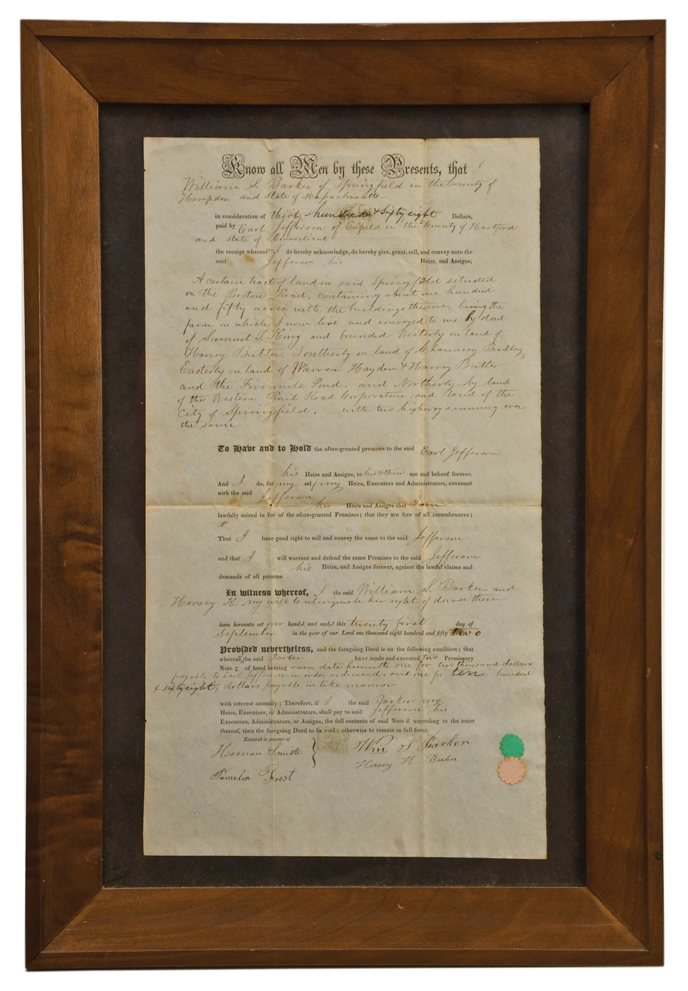 Know all Men by these Presents, that I
William S. Barker of Springfield in the County of
Hampden and State of Massachusetts
in consideration of thirty hundred & Sixty eight Dollars,
paid by Earl Jefferson of Enfield in the County of Hartford
and State of Connecticut
the receipt whereof I do hereby acknowledge, do hereby give, grant, sell, and convey unto the
said Jefferson his Heirs, and Assigns,
A certain tract of land in said Springfield situated
on the Boston Road, containing about one hundred
and fifty acres with the buildings thereon, being the
farm on which I now live and conveyed to me by deed
of Samuel T. King and bounded Westerly on land of
Harvey Butler Southerly on land of Chauncey Bradley
Easterly on land of Warren Haydon & Harvey Butler
and the Five mile Pond, and Northerly by land
of the Western Rail Road Corporation and land of the
City of Springfield. with two highways running over
the same
To Have and to Hold the afore-granted premises to the said Earl Jefferson
his Heirs and Assigns, to his & their use and behoof forever.
And I do, for my self my Heirs, Executors and Administrators, covenant
with the said Jefferson
his Heirs and Assigns that I am
lawfully seized in fee of the afore-granted Premises; that they are free of all incumbrances;
That I have good right to sell and convey the same to the said Jefferson
and that I will warrant and defend the same Premises to the said Jefferson
his Heirs, and Assigns forever, against the lawful claims and
demands of all persons.
In witness whereof, I the said William S. Barker and
Hersey H. my wife to relinquish her right of dower therein
have hereunto set our hands and seals this twenty first day of
September in the year of our Lord one thousand eight hundred and fifty two
Provided nevertheless, and the foregoing Deed is on the following condition; that
whereas the said Barker have made and executed two Promissory
Note s of hand bearing even date herewith one for two thousand dollars
payable to Earl Jefferson or order on demand, and one for ten hundred
& sixty eight dollars payable in like manner
with interest annually; Therefore, if I the said Barker my
Heirs, Executors, or Administrators, shall pay to said Jefferson his
Executors, Administrators, or Assigns, the full contents of said Note s according to the tenor
thereof, then the foregoing Deed to be void; otherwise to remain in full force.
Executed in presence of
Wm S. Barker
Herman Smith
Hersey H. Barker
Pamelia Frost